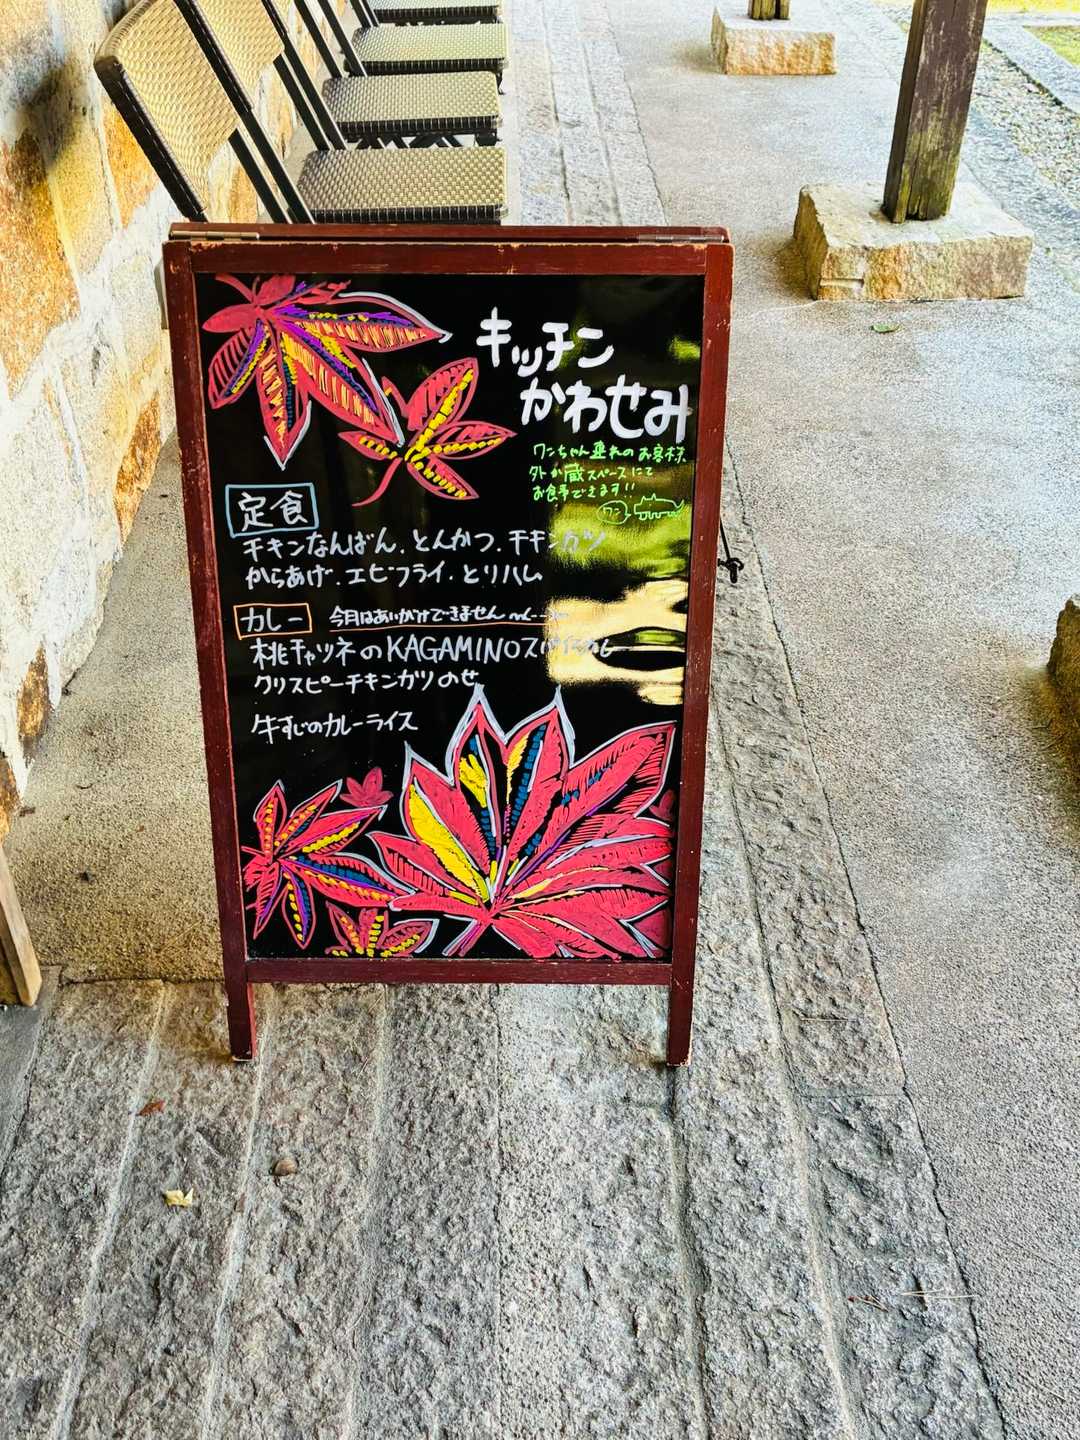 キッチン
かわせみ
ワンちゃん連れのお客様
外か蔵スペースにて
お食事できます!!
ワン
定食
チキンなんばん、とんかつ、チキンカツ
からあげ、エビフライ、とりハム
カレー 今月はあいがけできません
桃チャツネのKAGAMINOスパイスカレー
クリスピーチキンカツのせ
牛すじのカレーライス